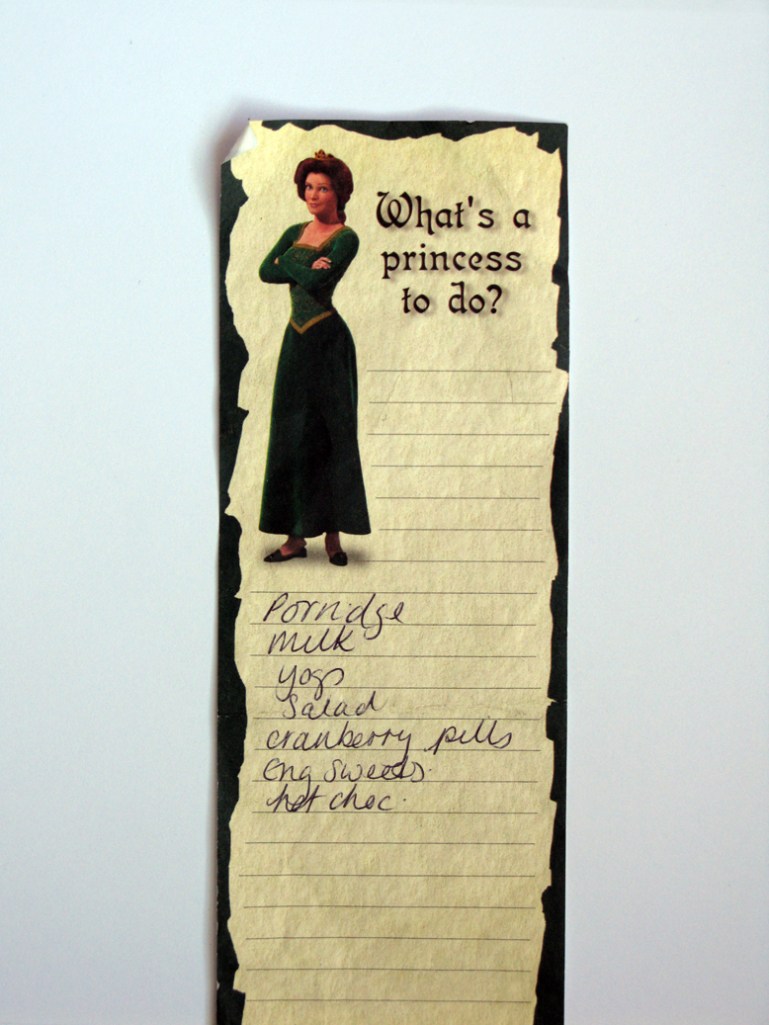 What's a
princess
to do?
Porridge
milk
yogs
Salad
cranberry pills
Eng Sweets.
hot choc.